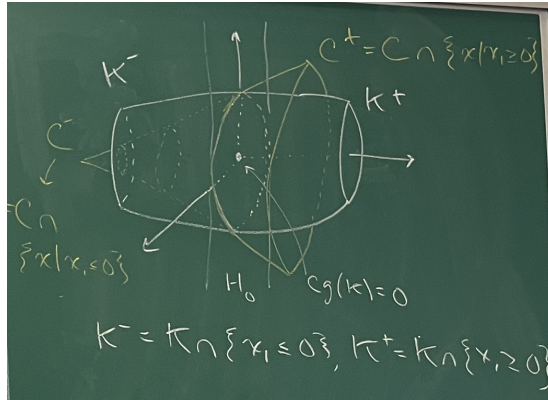 C⁺ = C∩{x|x₁≥0}
K⁻
K⁺
C⁻
=C∩
{x|x₁≤0}
H₀
cg(K)=0
K⁻ = K∩{x₁≤0}, K⁺=K∩{x₁≥0}